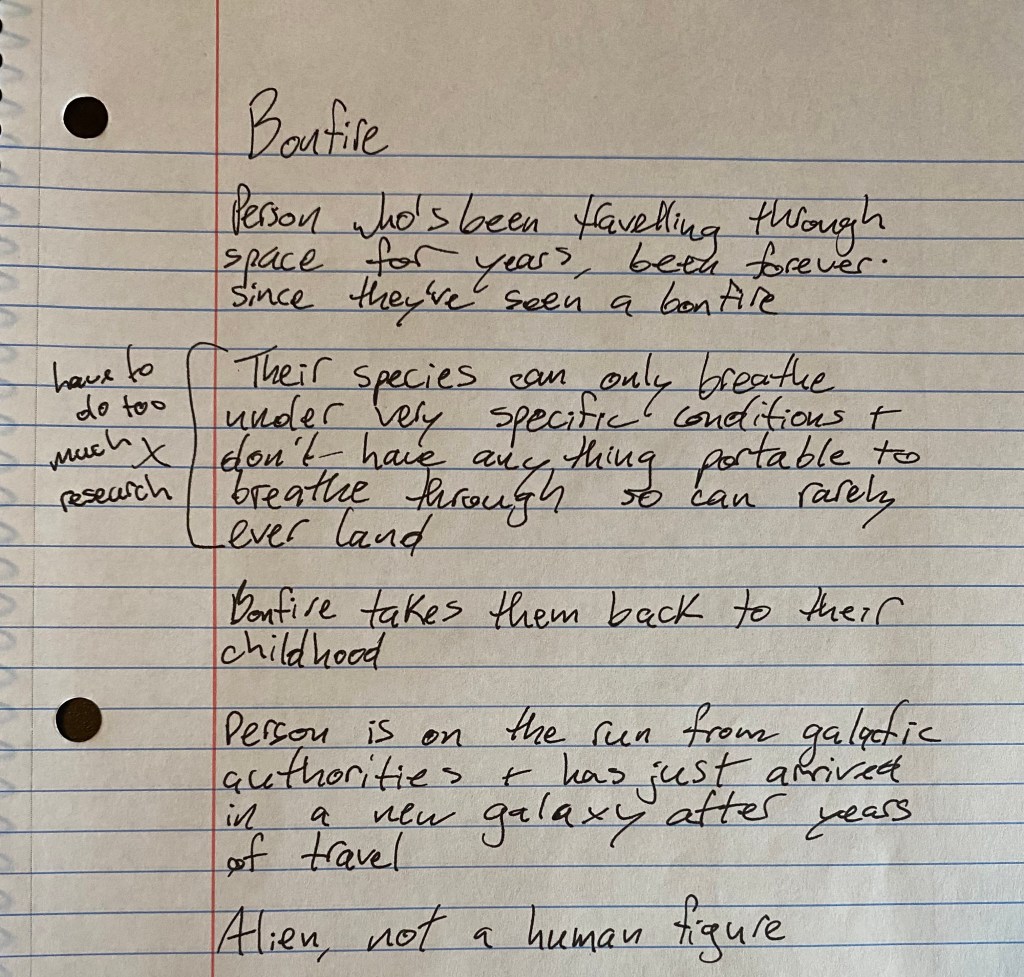 Bonfire
Person who's been travelling through
space for years, been forever.
since they've seen a bonfire
have to
do too
much X
research
Their species can only breathe
under very specific conditions +
don't have any thing portable to
breathe through so can rarely
ever land
Bonfire takes them back to their
childhood
Person is on the run from galactic
authorities + has just arrived
in a new galaxy after years
of travel
Alien, not a human figure